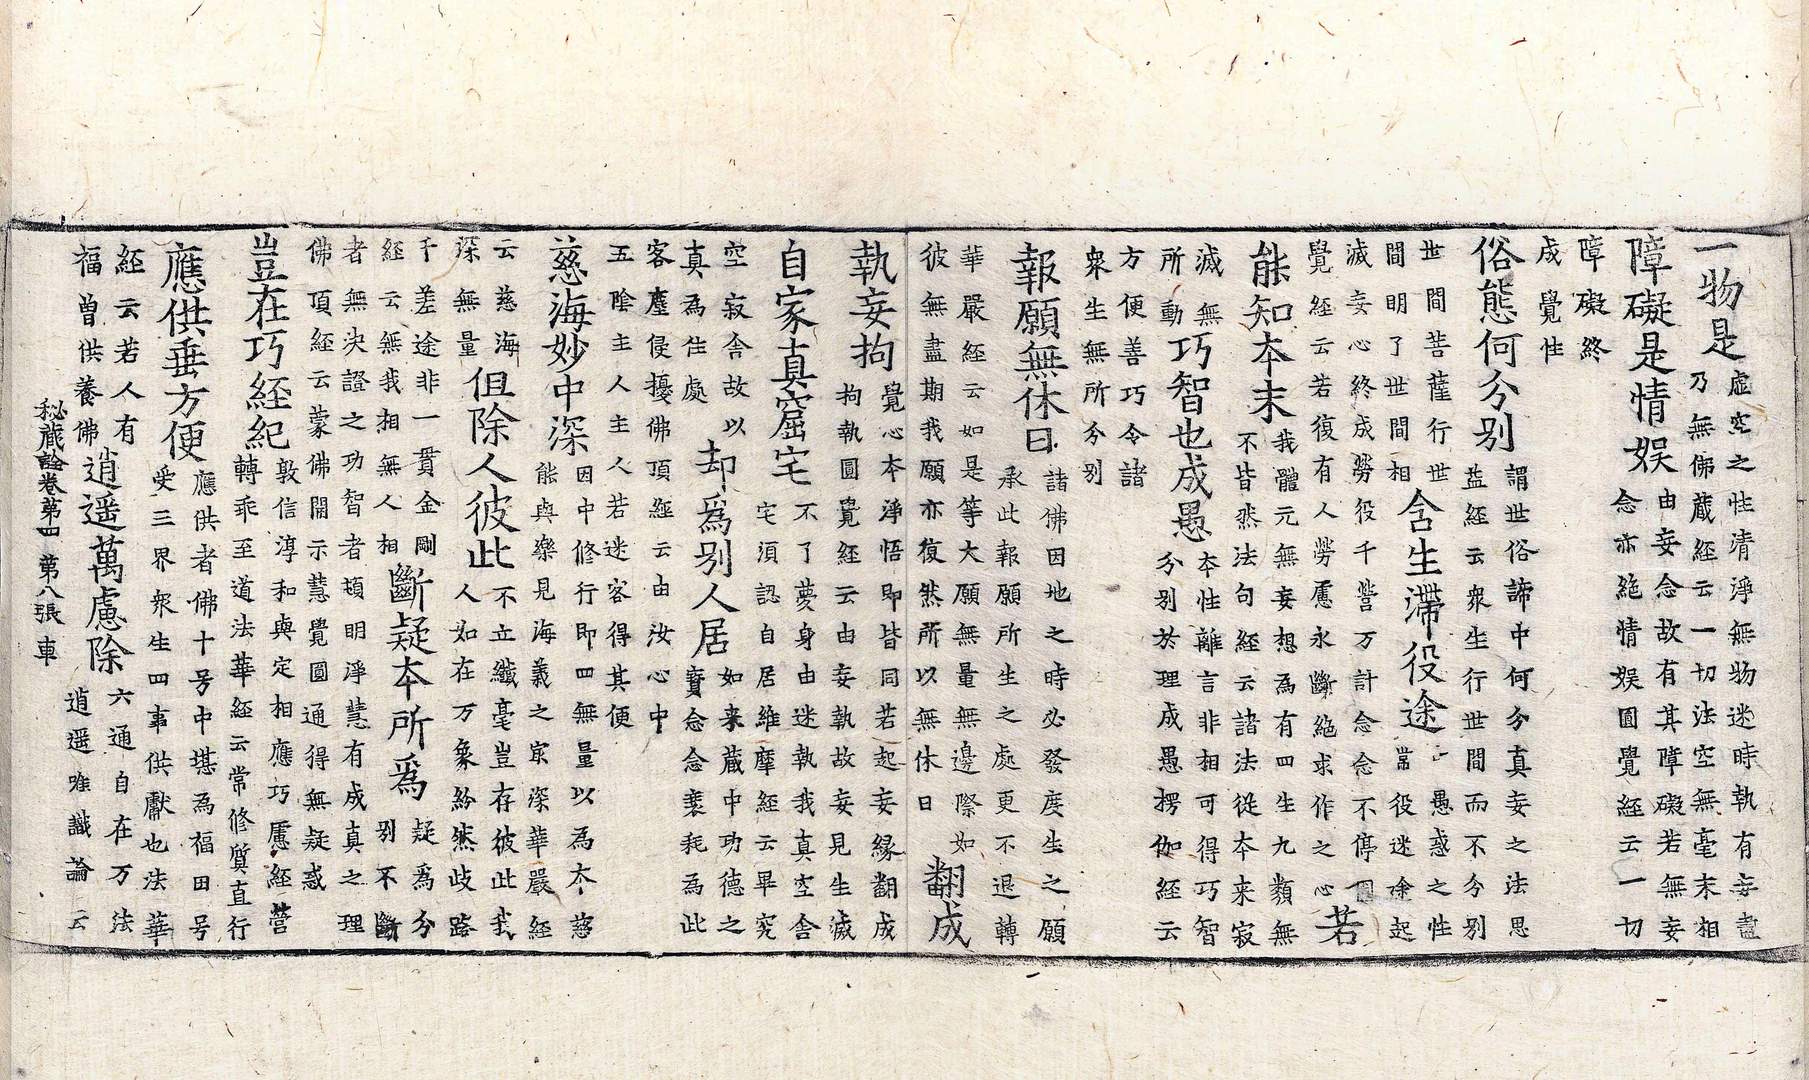 一物是虛空之性清淨無物迷時執有妄盡
乃無佛藏經云一切法空無毫末相
障礙是情娛由妄念故有其障礙若無妄
念亦絕情娛圓覺經云一切
障礙終
成覺性
俗態何分别謂世俗諦中何分真妄之法思
益經云衆生行世間而不分别
世間菩薩行世
間明了世間相
含生滯役途愚惑之性
常役迷途起
滅妄心終成勞役千營万計念念不停圓
覺經云若復有人勞慮永斷絶求作之心
若
能知本末我體元無妄想為有四生九類無
不皆然法句經云諸法從本来寂
滅無
所動
巧智也成愚本性離言非相可得巧智
分别於理成愚楞伽經云
方便善巧令諸
衆生無所分别
報願無休日諸佛因地之時必發度生之願
承此報願所生之處更不退轉
華嚴經云如是等大願無量無邊際如
彼無盡期我願亦復然所以無休日
翻成
執妄拘覺心本淨悟即皆同若起妄緣翻成
拘執圓覺經云由妄執故妄見生滅
自家真窟宅不了夢身由迷執我真空舍
宅須認自居維摩經云畢究
空寂舍故以
真為住處
却爲别人居如来藏中功德之
寶念念衰耗為此
客塵侵擾佛頂經云由汝心中
五陰主人主人若迷客得其便
慈海妙中深因中修行即四無量以為太慈
能與樂見海義之宗深華嚴經
云慈海
深無量
但除人彼此不立纖毫豈存彼此我
人如在万象紛然歧路
千差途非一貫金剛
經云無我相無人相
斷疑本所爲疑爲分
别不斷
者無決證之功智者頓明淨慧有成真之理
佛頂經云蒙佛開示慧覺圓通得無疑惑
豈在巧經紀敦信淳和與定相應巧慮經營
轉乖至道法華經云常修質直行
應供垂方便應供者佛十号中堪為福田号
受三界衆生四事供獻也法華
經云若人有
福曾供養佛
逍遥萬慮除六通自在万法
逍遥唯識論云
秘藏詮卷第四　第八張　車